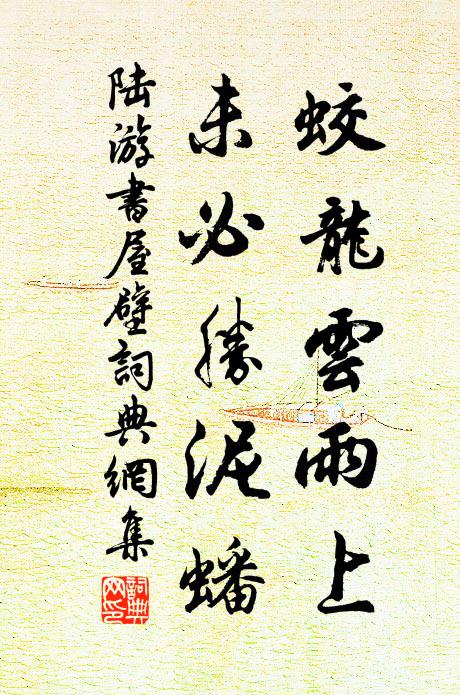 蛟龍雲雨上
未必勝泥蟠
陸游書屋壁詞典網集
詞典
网印